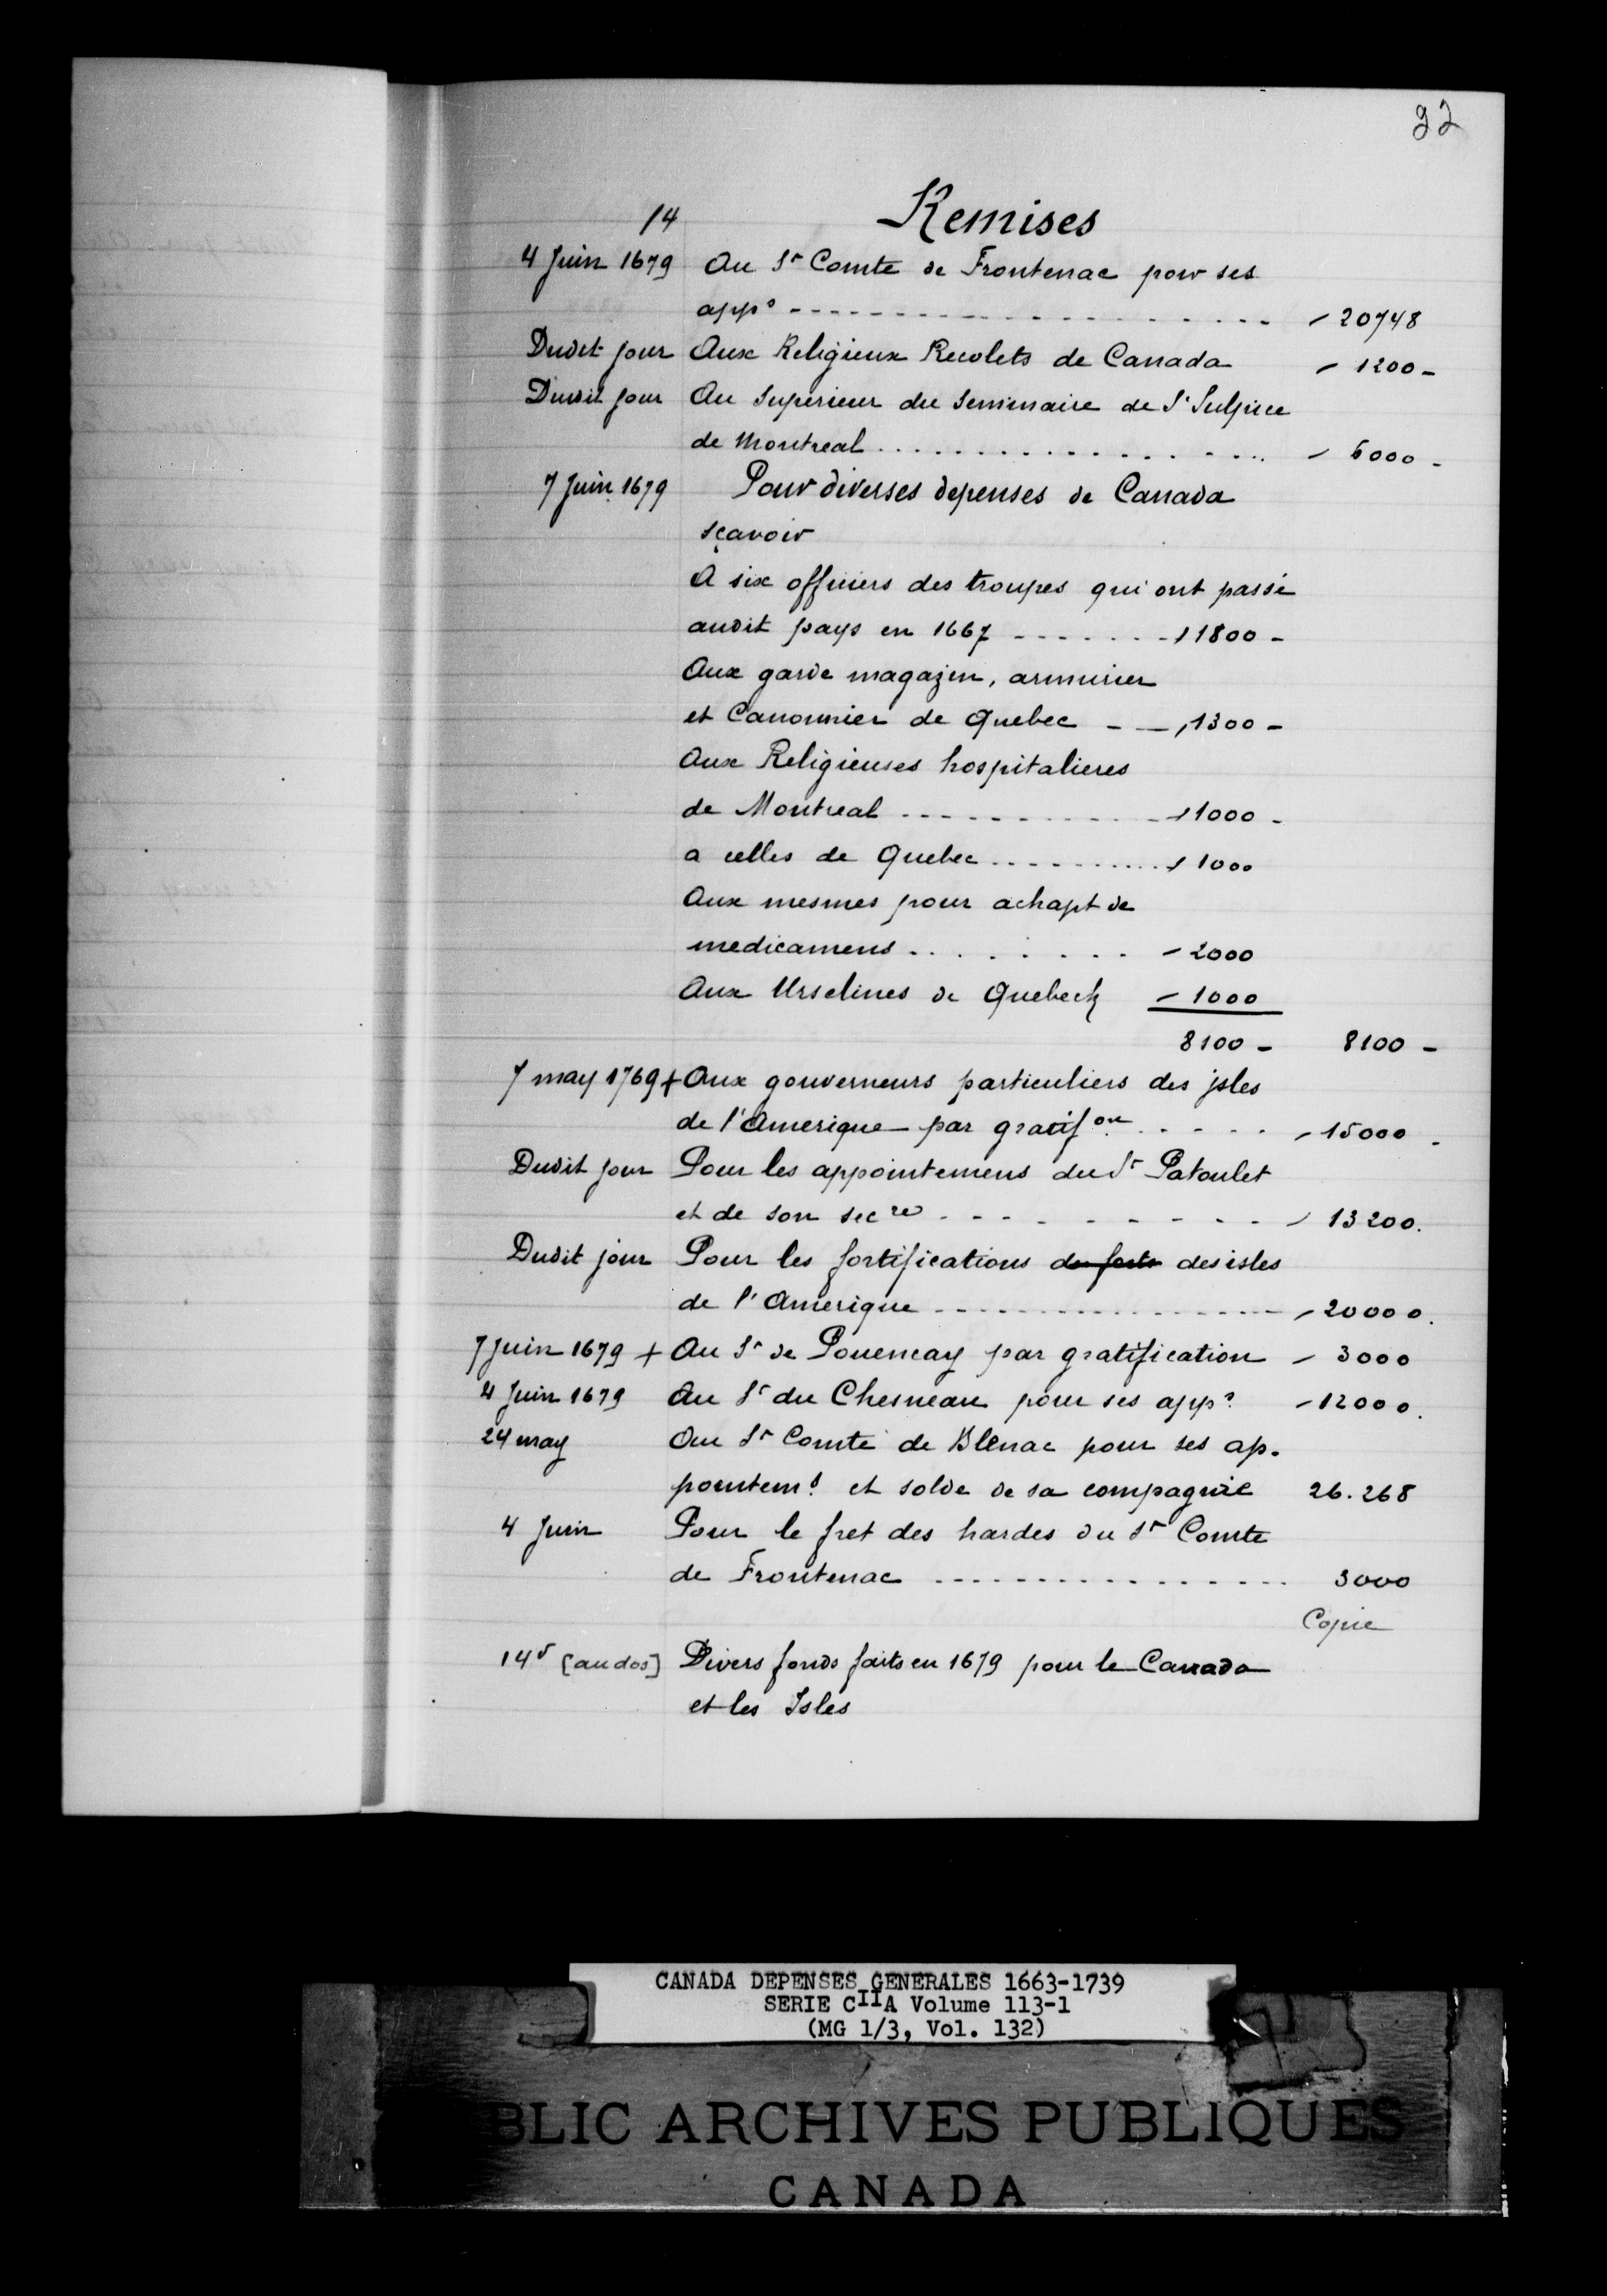 92
14 Remises
4 Juin 1679 Au Sr Comte de Frontenac pour ses
apps - - - - - - - - - - - - - - - - - - - - 20748
Dudit jour Aux Religieux Recolets de Canada - 1200 -
Dudit jour Au Superieur du Seminaire de St Sulpice
de Montreal . . . . . . . . . . . . . . . . - 6000 -
7 Juin 1679 Pour diverses depenses de Canada
sçavoir
A six officiers des troupes qui ont passé
audit pays en 1667 - - - - - - - 1800 -
Aux garde magazin, armurier
et Canonnier de Quebec - - 1300 -
Aux Religieuses hospitalieres
de Montreal - - - - - - - - - - - 1000 -
a celles de Quebec . . . . . . . . . . 1000
Aux mesmes pour achapt de
medicamens . . . . . . . . - 2000
Aux Urselines de Quebeck - 1000
8100 - 8100 -
7 may 1769 + Aux gouverneurs particuliers des isles
de l'Amerique par gratifon . . . . . - 15000 -
Dudit jour Pour les appointemens du Sr Patoulet
et de son secre - - - - - - - - - - 13200.
Dudit jour Pour les fortifications des forts des isles
de l'Amerique - - - - - - - - - - - - - - - - 20000.
7 Juin 1679 + Au Sr de Pouencay par gratification - 3000
4 Juin 1679 Au Sr du Chesneau pour ses apps - 12000.
24 may Au Sr Comte de Blenac pour ses ap-
pointems et solde de sa compagnie 26.268
4 Juin Pour le fret des hardes du Sr Comte
de Frontenac - - - - - - - - - - - - - - - - 3000
Copie
14v [au dos] Divers fonds faits en 1679 pour le Canada
et les Isles
CANADA DEPENSES GENERALES 1663-1739
SERIE CIIA Volume 113-1
(MG 1/3, Vol. 132)
BLIC ARCHIVES PUBLIQUES
CANADA